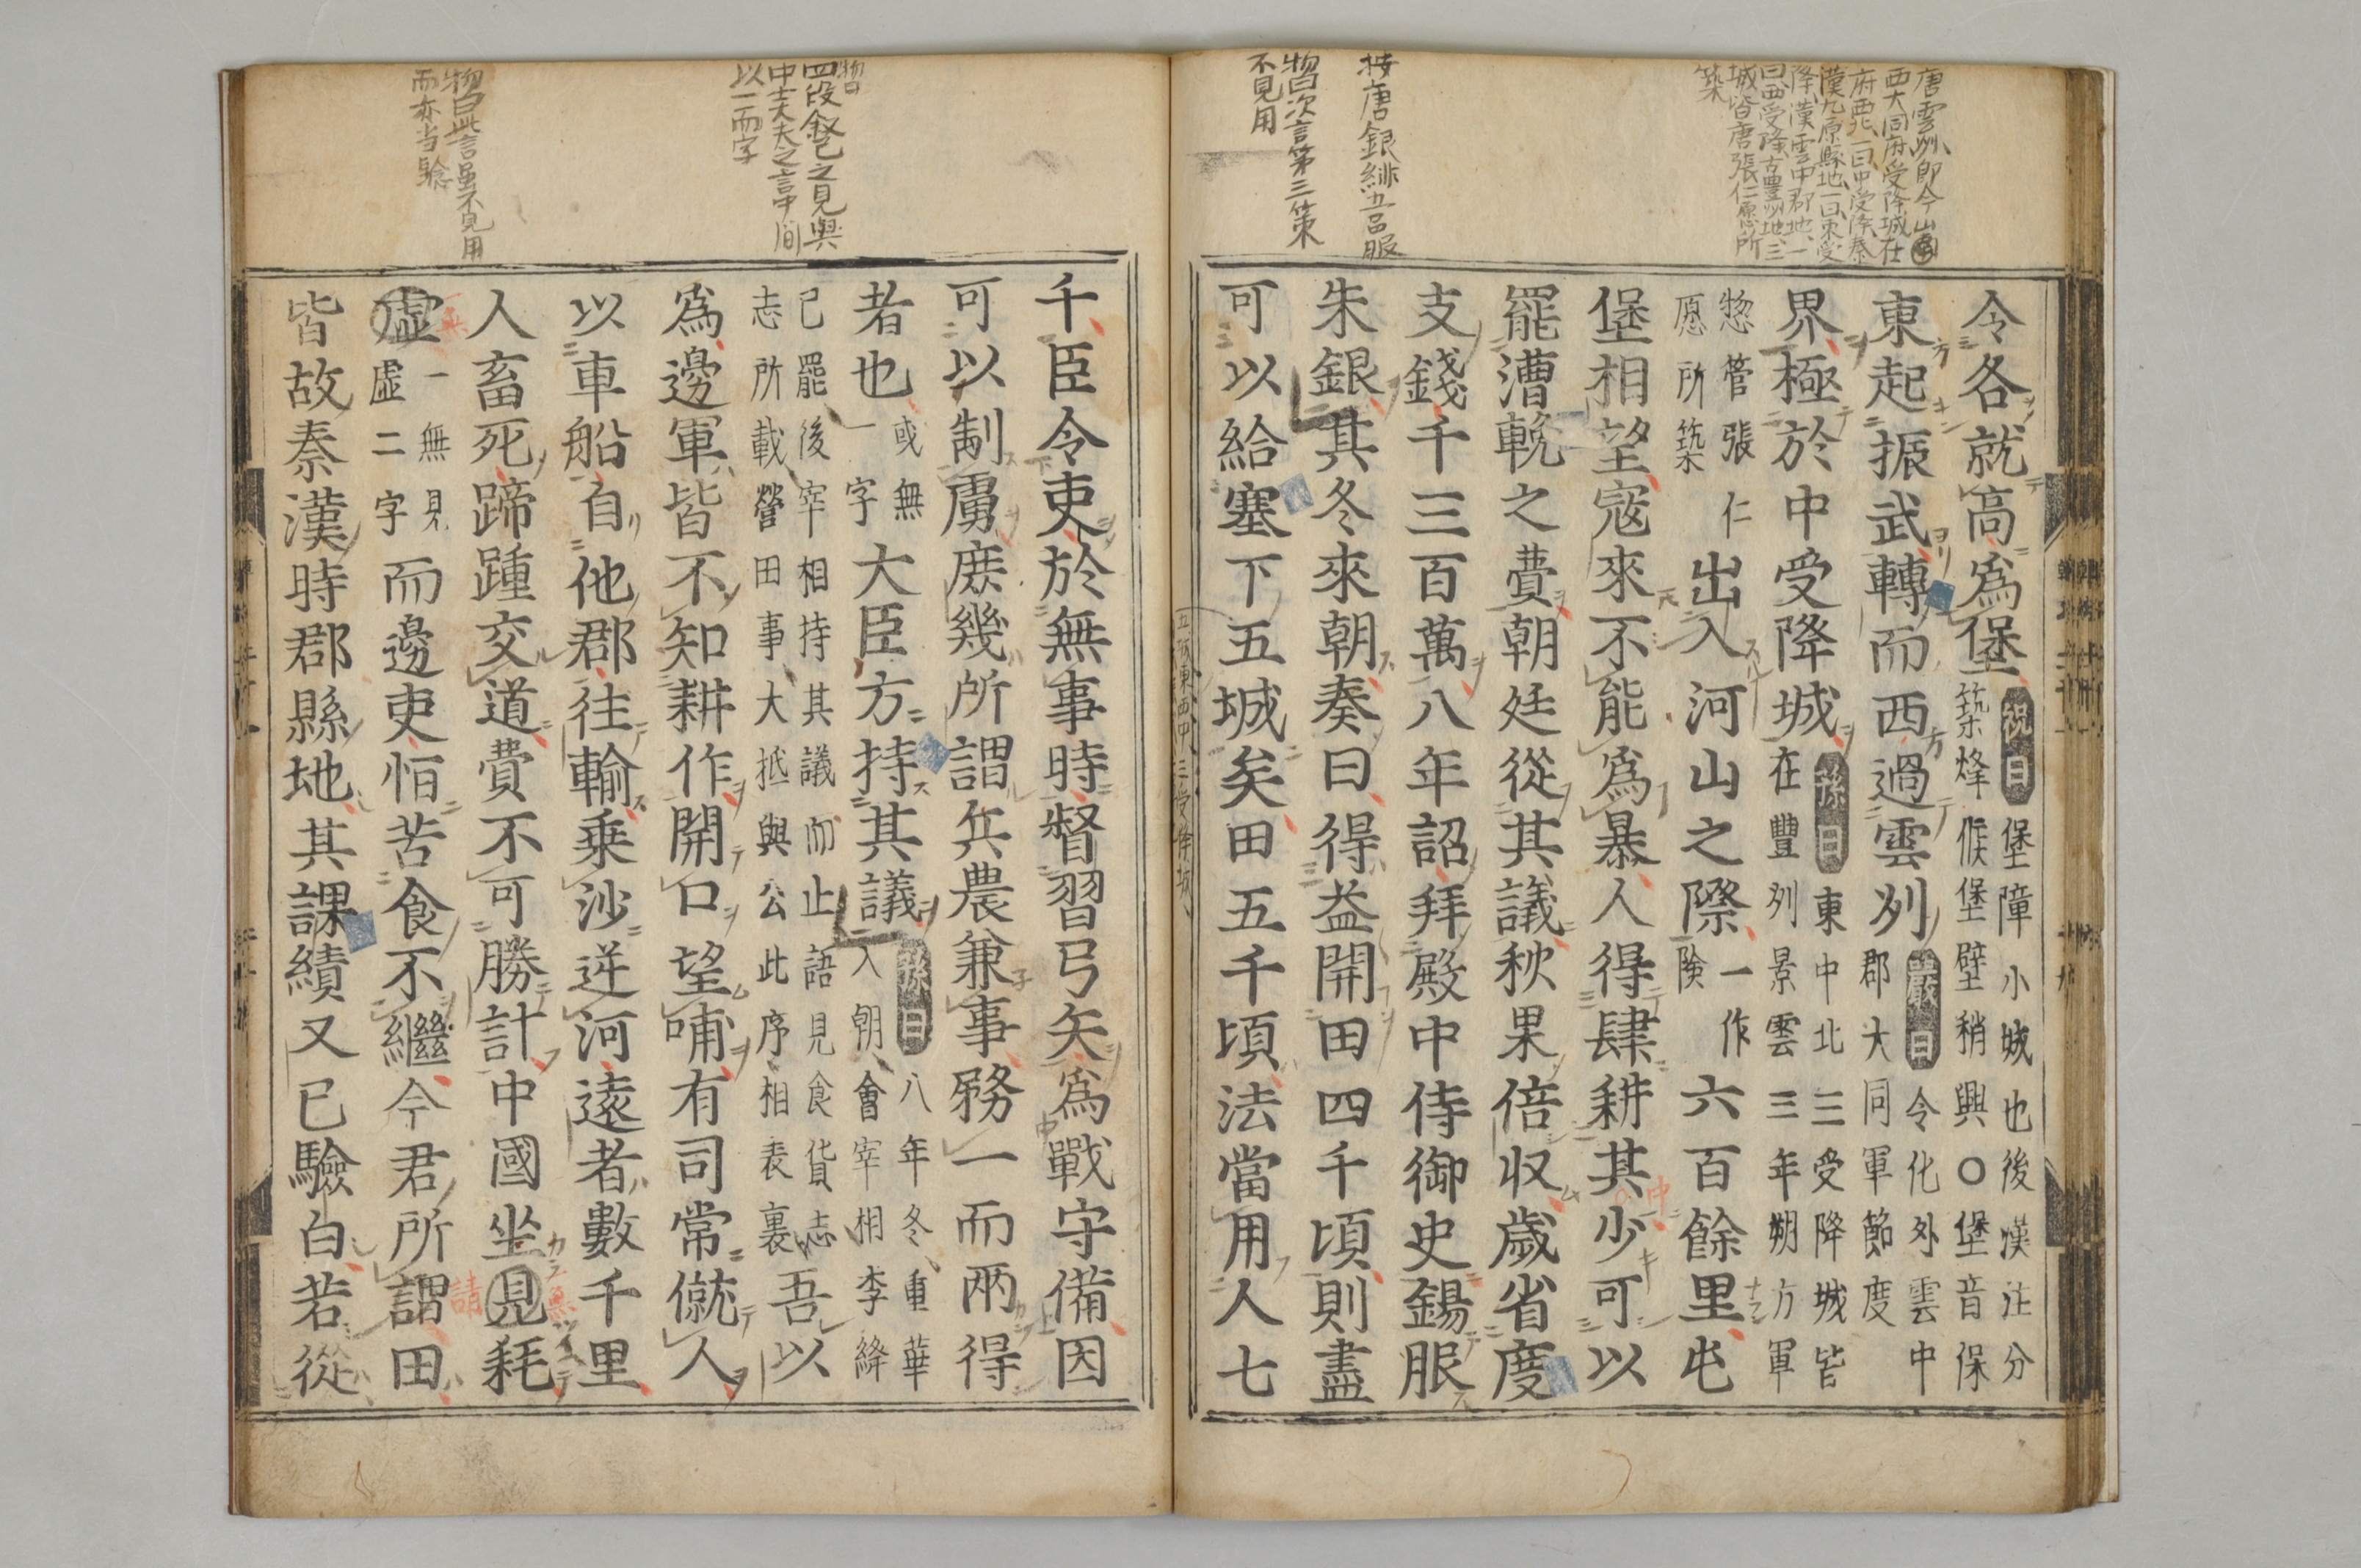 唐雲州即今山
西大同府受降城在
府西北一曰中受降秦
漢九原縣地一曰東受
降漢雲中郡地一
曰西受降古豐州地三
城皆唐張仁愿所
築
按唐銀緋五品服
惣曰次言第三策
不見用
令各就高爲堡
祝曰堡障小城也後漢注分
築烽候堡壁稍興○堡音保
東起振武轉而西過雲州
嚴曰令化外雲中
郡大同軍節度
界極於中受降城
孫曰東中北三受降城皆
在豐州景雲三年朔方軍
惣管張仁
愿所築
出入河山之際
一作
險
六百餘里屯
堡相望寇來不能爲暴人得肆耕其少可以
罷漕輓之費朝廷從其議秋果倍収歳省度
支錢千三百萬八年詔拜殿中侍御史錫服
朱銀其冬來朝奏曰得益開田四千頃則盡
可以給塞下五城矣田五千頃法當用人七
中間
以一而字
惣曰此言虽不見用
而亦当驗
千臣令吏於無事時督習弓矢爲戰守備因
可以制虜庶幾所謂兵農兼事務一而兩得
者也
或無
一字
大臣方持其議
孫曰八年冬重華
入朝會宰相李絳
已罷後宰相持其議而止語見食貨志
志所載營田事大抵與公此序相表裏
吾以
爲邊軍皆不知耕作開口望哺有司常僦人
以車船自他郡往輸乗沙逆河遠者數千里
人畜死蹄踵交道費不可勝計中國坐見耗
虛
一無見
虛二字
而邊吏恒苦食不繼今君所謂田
皆故秦漢時郡縣地其課績又已驗白若從